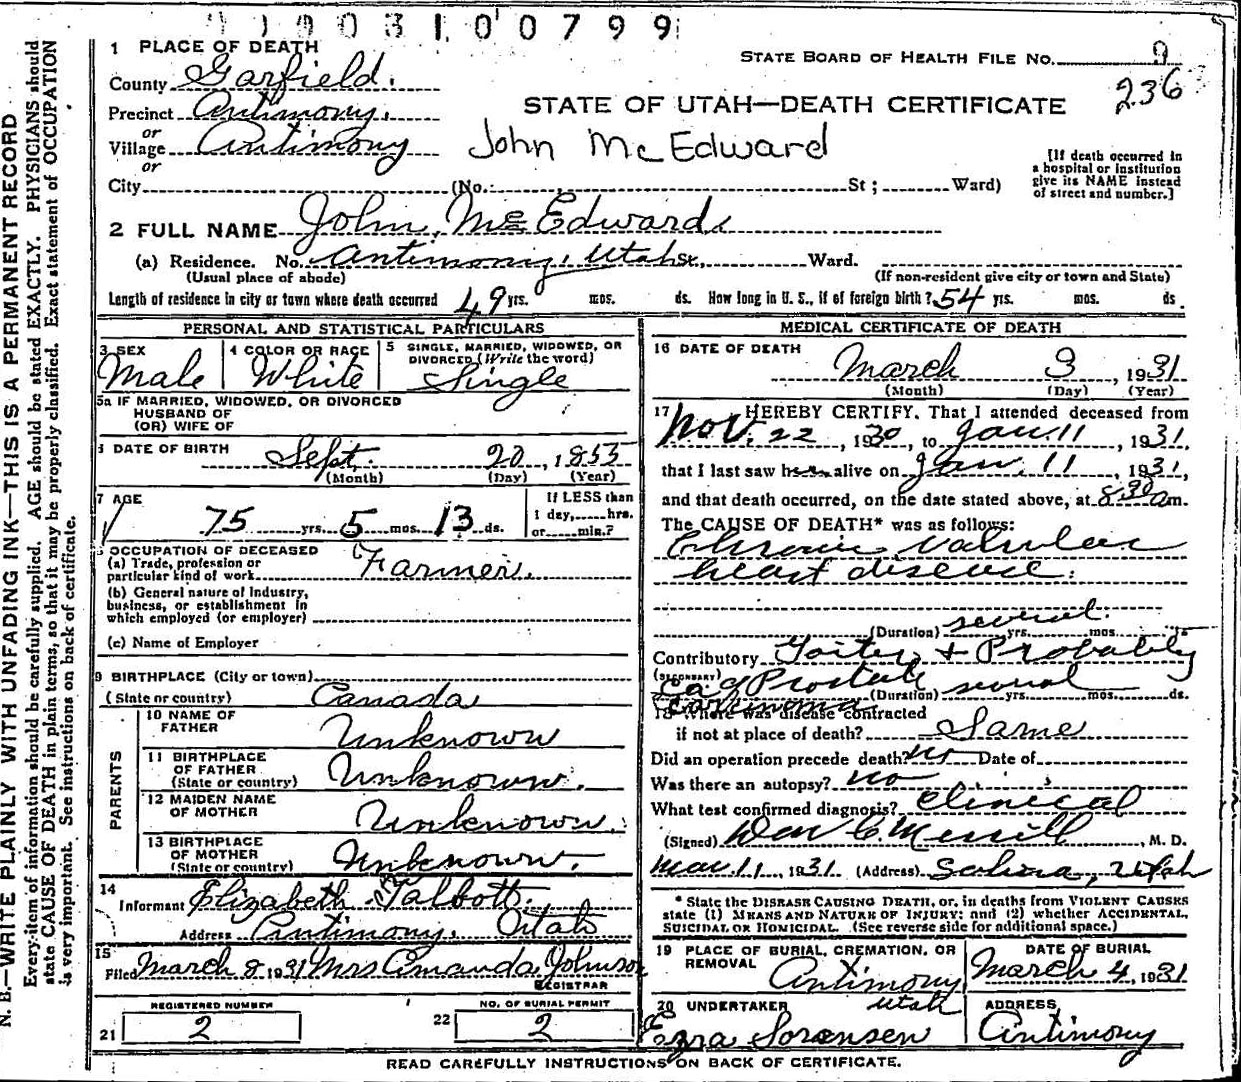 N. B.—WRITE PLAINLY WITH UNFADING INK—THIS IS A PERMANENT RECORD
Every item of information should be carefully supplied. AGE should be stated EXACTLY. PHYSICIANS should
state CAUSE OF DEATH in plain terms, so that it may be properly classified. Exact statement of OCCUPATION
is very important. See instructions on back of certificate.
0 0 3 1 0 0 7 9 9
1 PLACE OF DEATH
STATE BOARD OF HEALTH FILE NO. 9
236
County Garfield.
Precinct Antimony.
STATE OF UTAH—DEATH CERTIFICATE
or
Village Antimony
John McEdward
or
[If death occurred in
a hospital or institution
give its NAME instead
of street and number.]
City (No. St; Ward)
2 FULL NAME John McEdward
(a) Residence. No. Antimony, Utah St., Ward.
(Usual place of abode) (If non-resident give city or town and State)
Length of residence in city or town where death occurred 49 yrs. mos. ds. How long in U. S., if of foreign birth? 54 yrs. mos. ds.
PERSONAL AND STATISTICAL PARTICULARS
3 SEX
Male
4 COLOR OR RACE
White
5 SINGLE, MARRIED, WIDOWED, OR
DIVORCED (Write the word)
Single
5a IF MARRIED, WIDOWED, OR DIVORCED
HUSBAND OF
(OR) WIFE OF
DATE OF BIRTH Sept. 20, 1855
(Month) (Day) (Year)
7 AGE
75 yrs. 5 mos. 13 ds.
If LESS than
1 day, hrs.
or min.?
OCCUPATION OF DECEASED
(a) Trade, profession or
particular kind of work Farmer.
(b) General nature of Industry,
business, or establishment in
which employed (or employer)
(c) Name of Employer
9 BIRTHPLACE (City or town)
(State or country) Canada
PARENTS
10 NAME OF
FATHER Unknown
11 BIRTHPLACE
OF FATHER
(State or country) Unknown.
12 MAIDEN NAME
OF MOTHER Unknown.
13 BIRTHPLACE
OF MOTHER
(State or country) Unknown.
14
Informant Elizabeth Talbott.
Address Antimony, Utah
15
Filed March 8 1931 Mrs Amanda Johnson
REGISTRAR
REGISTERED NUMBER
21 2
NO. OF BURIAL PERMIT
22 2
MEDICAL CERTIFICATE OF DEATH
16 DATE OF DEATH
March 3, 1931
(Month) (Day) (Year)
17 I HEREBY CERTIFY, That I attended deceased from
Nov. 22, 1930, to Jan. 11, 1931,
that I last saw h alive on Jan. 11, 1931,
and that death occurred, on the date stated above, at 8 30 am.
The CAUSE OF DEATH* was as follows:
Chronic Valvular
heart disease.
(Duration) several yrs. mos. ds.
Contributory Goiter + Probably
(SECONDARY)
Ca of Prostate (Duration) several yrs. mos. ds.
Carcinoma
18 Where was disease contracted
if not at place of death? Same
Did an operation precede death? no Date of
Was there an autopsy? no
What test confirmed diagnosis? Clinical
(Signed) C. Merrill, M. D.
Mar. 11, 1931. (Address) Salina, Utah
* State the DISEASE CAUSING DEATH, or, in deaths from VIOLENT CAUSES
state (1) MEANS AND NATURE OF INJURY; and (2) whether ACCIDENTAL,
SUICIDAL OR HOMICIDAL. (See reverse side for additional space.)
19 PLACE OF BURIAL, CREMATION, OR
REMOVAL
Antimony
Utah
DATE OF BURIAL
March 4, 1931
20 UNDERTAKER
Ezra Sorensen
ADDRESS
Antimony
READ CAREFULLY INSTRUCTIONS ON BACK OF CERTIFICATE.